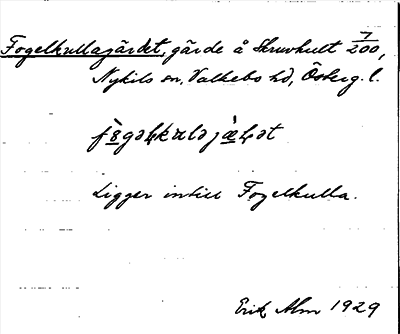 Fogelkullagärdet, gärde å Skruvhult 7/200,
Nykils sn, Valkebo hd, Österg. l.
Ligger intill Fogelkulla.
Erik Alm 1929